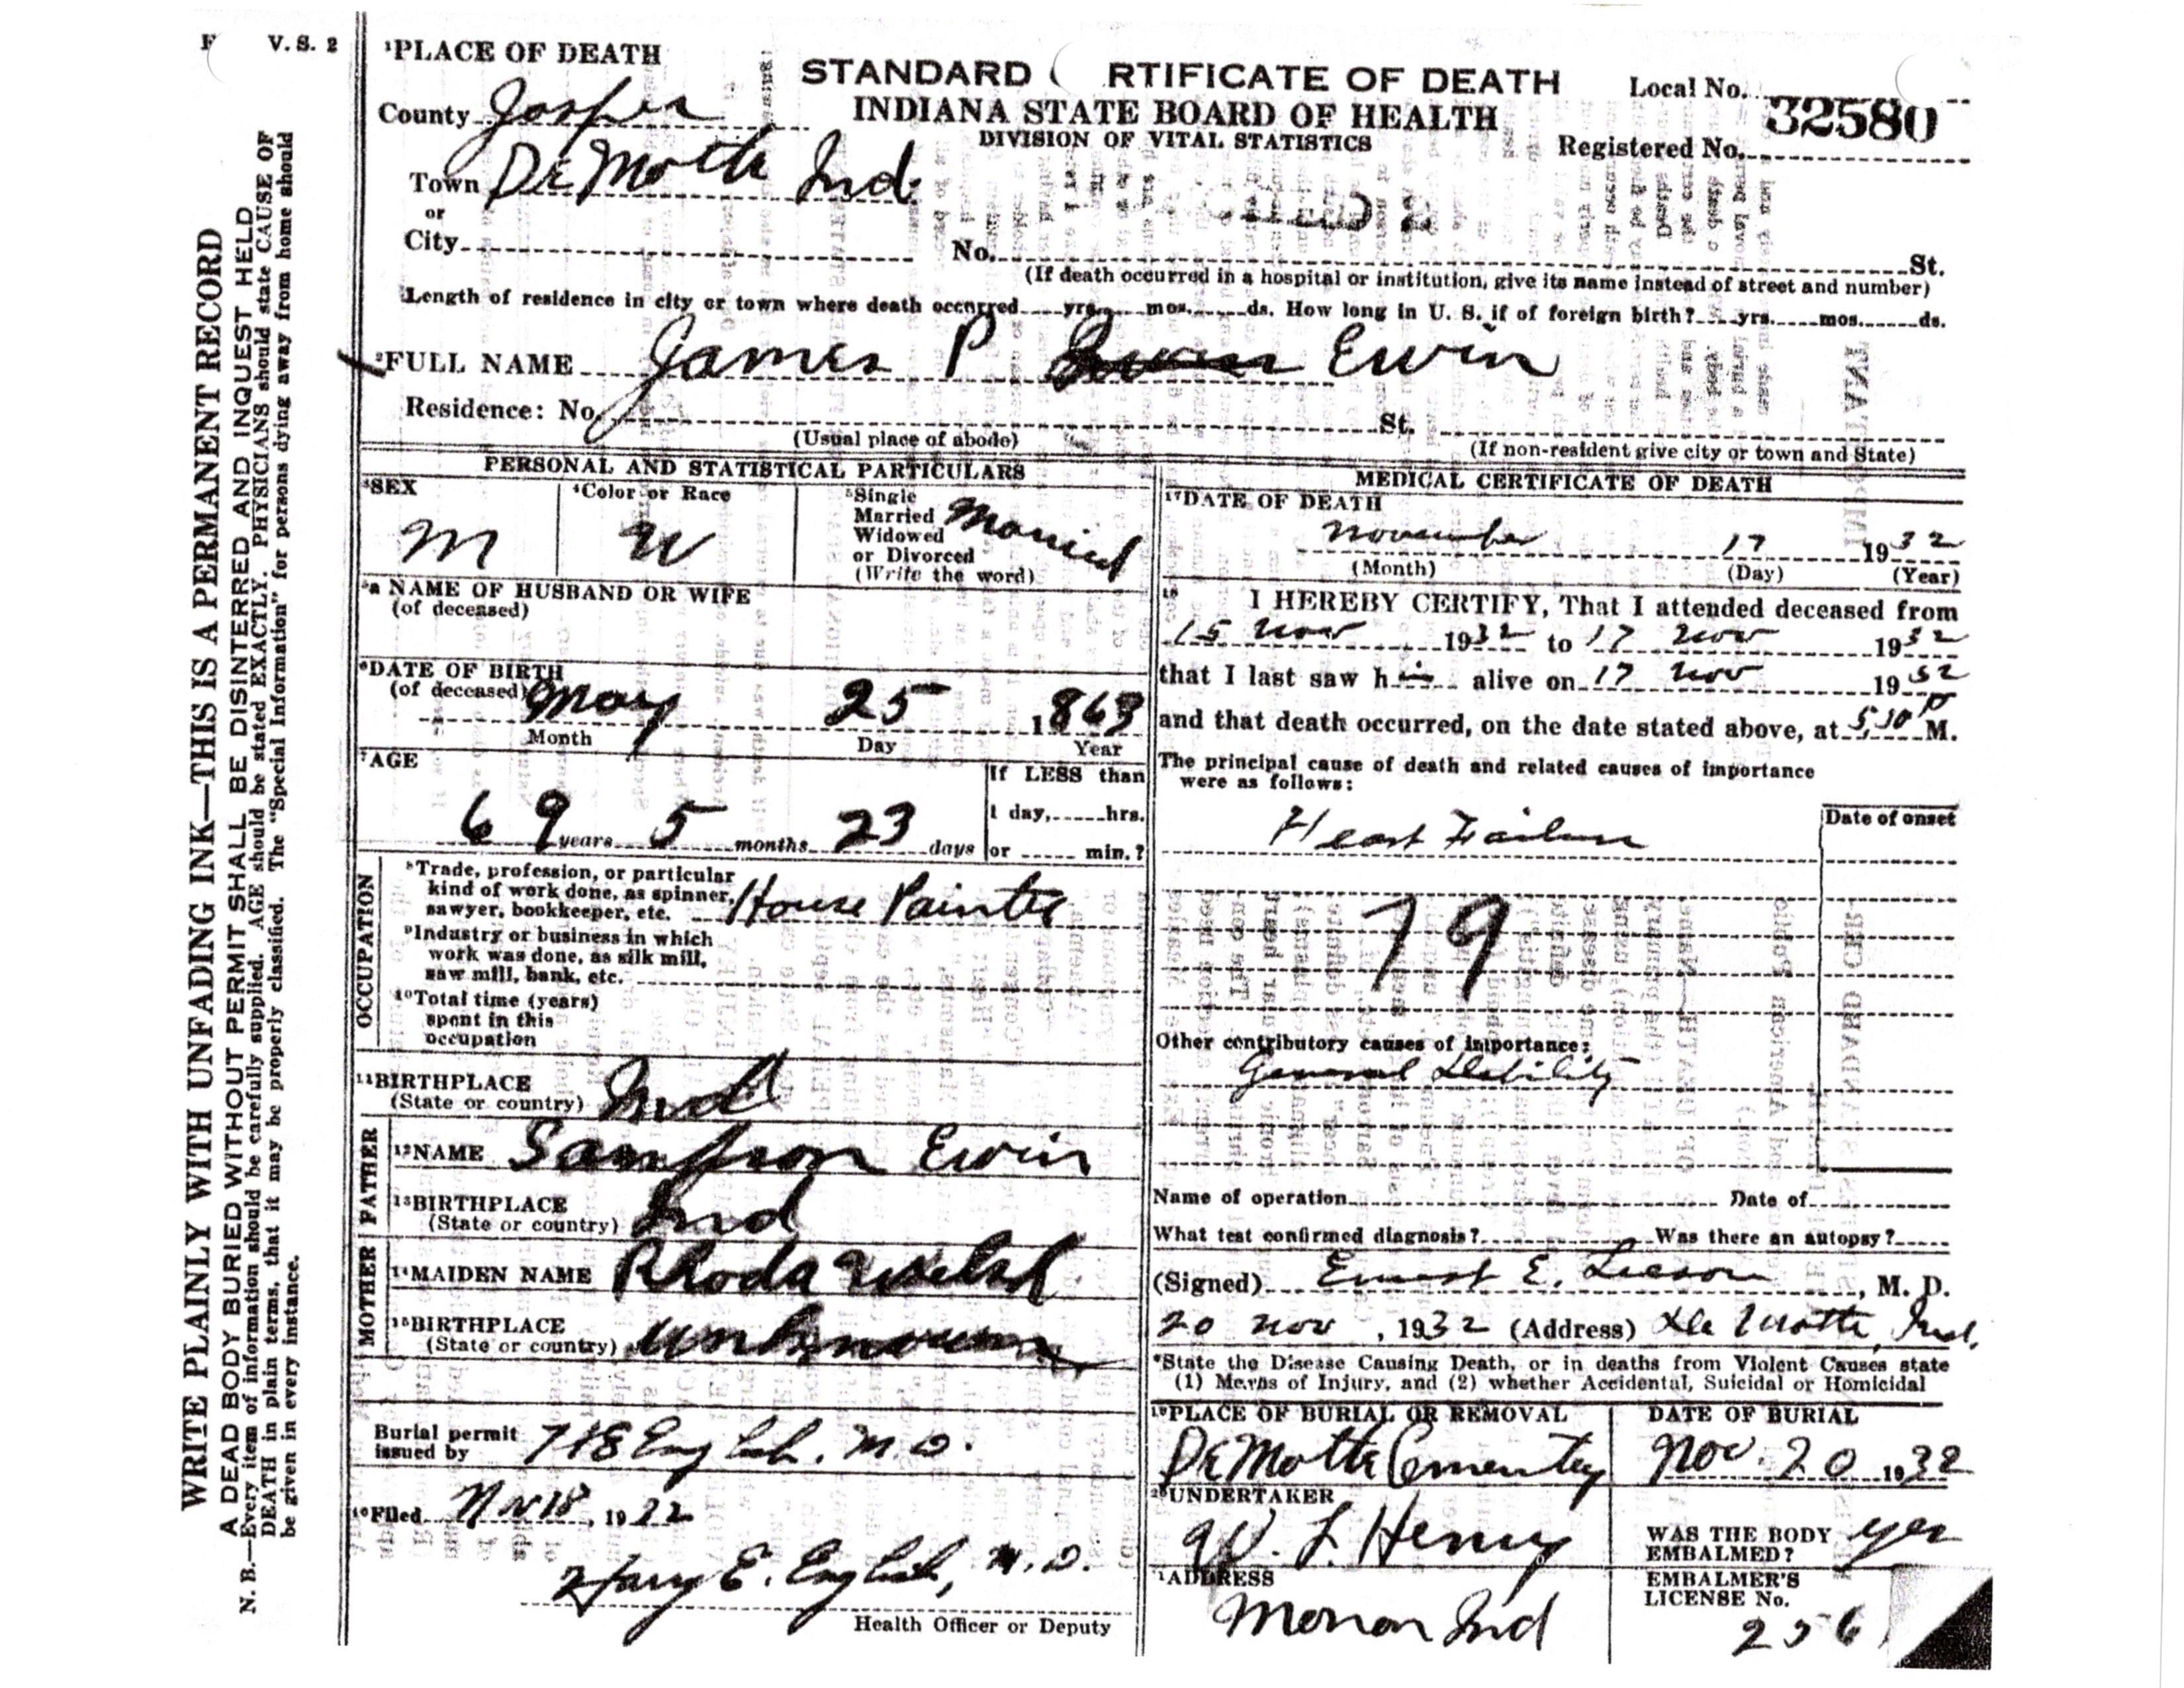 V. S. 2
WRITE PLAINLY WITH UNFADING INK—THIS IS A PERMANENT RECORD
A DEAD BODY BURIED WITHOUT PERMIT SHALL BE DISINTERRED AND INQUEST HELD
N. B.—Every item of information should be carefully supplied. AGE should be stated EXACTLY. PHYSICIANS should state CAUSE OF
DEATH in plain terms, that it may be properly classified. The "Special Information" for persons dying away from home should
be given in every instance.
1PLACE OF DEATH
STANDARD RTIFICATE OF DEATH
INDIANA STATE BOARD OF HEALTH
DIVISION OF VITAL STATISTICS
Local No.
32580
Registered No.
County Jasper
Town DeMotte Ind.
or
City
No. St.
(If death occurred in a hospital or institution, give its name instead of street and number)
Length of residence in city or town where death occurred yrs. mos. ds. How long in U. S. if of foreign birth? yrs. mos. ds.
2FULL NAME James P Erwin
Residence: No. St.
(Usual place of abode)
(If non-resident give city or town and State)
PERSONAL AND STATISTICAL PARTICULARS
3SEX
M
4Color or Race
W
5Single
Married
Widowed
or Divorced
(Write the word)
Married
5a NAME OF HUSBAND OR WIFE
(of deceased)
6DATE OF BIRTH
(of deceased) May 25 1863
Month Day Year
7AGE
69 years 5 months 23 days
If LESS than
1 day, hrs.
or min.?
OCCUPATION
8Trade, profession, or particular
kind of work done, as spinner,
sawyer, bookkeeper, etc. House Painter
9Industry or business in which
work was done, as silk mill,
saw mill, bank, etc.
10Total time (years)
spent in this
occupation
11BIRTHPLACE
(State or country) Ind
FATHER
12NAME Sampson Erwin
13BIRTHPLACE
(State or country) Ind
MOTHER
14MAIDEN NAME Rhoda Welsh
15BIRTHPLACE
(State or country) unknown
Burial permit
issued by H E English, M.D.
16Filed Nov 18, 1932
Harry E. English, M.D.
Health Officer or Deputy
MEDICAL CERTIFICATE OF DEATH
17DATE OF DEATH
November 17 1932
(Month) (Day) (Year)
18 I HEREBY CERTIFY, That I attended deceased from
15 Nov 1932 to 17 Nov 1932
that I last saw him alive on 17 Nov 1932
and that death occurred, on the date stated above, at 5,30 P M.
The principal cause of death and related causes of importance
were as follows:
Date of onset
Heart Failure
79
Other contributory causes of importance:
General Debility
Name of operation Date of
What test confirmed diagnosis? Was there an autopsy?
(Signed) Ernest E. Leeson, M. D.
20 Nov, 1932 (Address) De Motte, Ind.
*State the Disease Causing Death, or in deaths from Violent Causes state
(1) Means of Injury, and (2) whether Accidental, Suicidal or Homicidal
19PLACE OF BURIAL OR REMOVAL
DeMotte Cementey
DATE OF BURIAL
Nov. 20 1932
20UNDERTAKER
W. L. Henry
WAS THE BODY
EMBALMED?
yes
ADDRESS
Monon Ind
EMBALMER'S
LICENSE No.
256